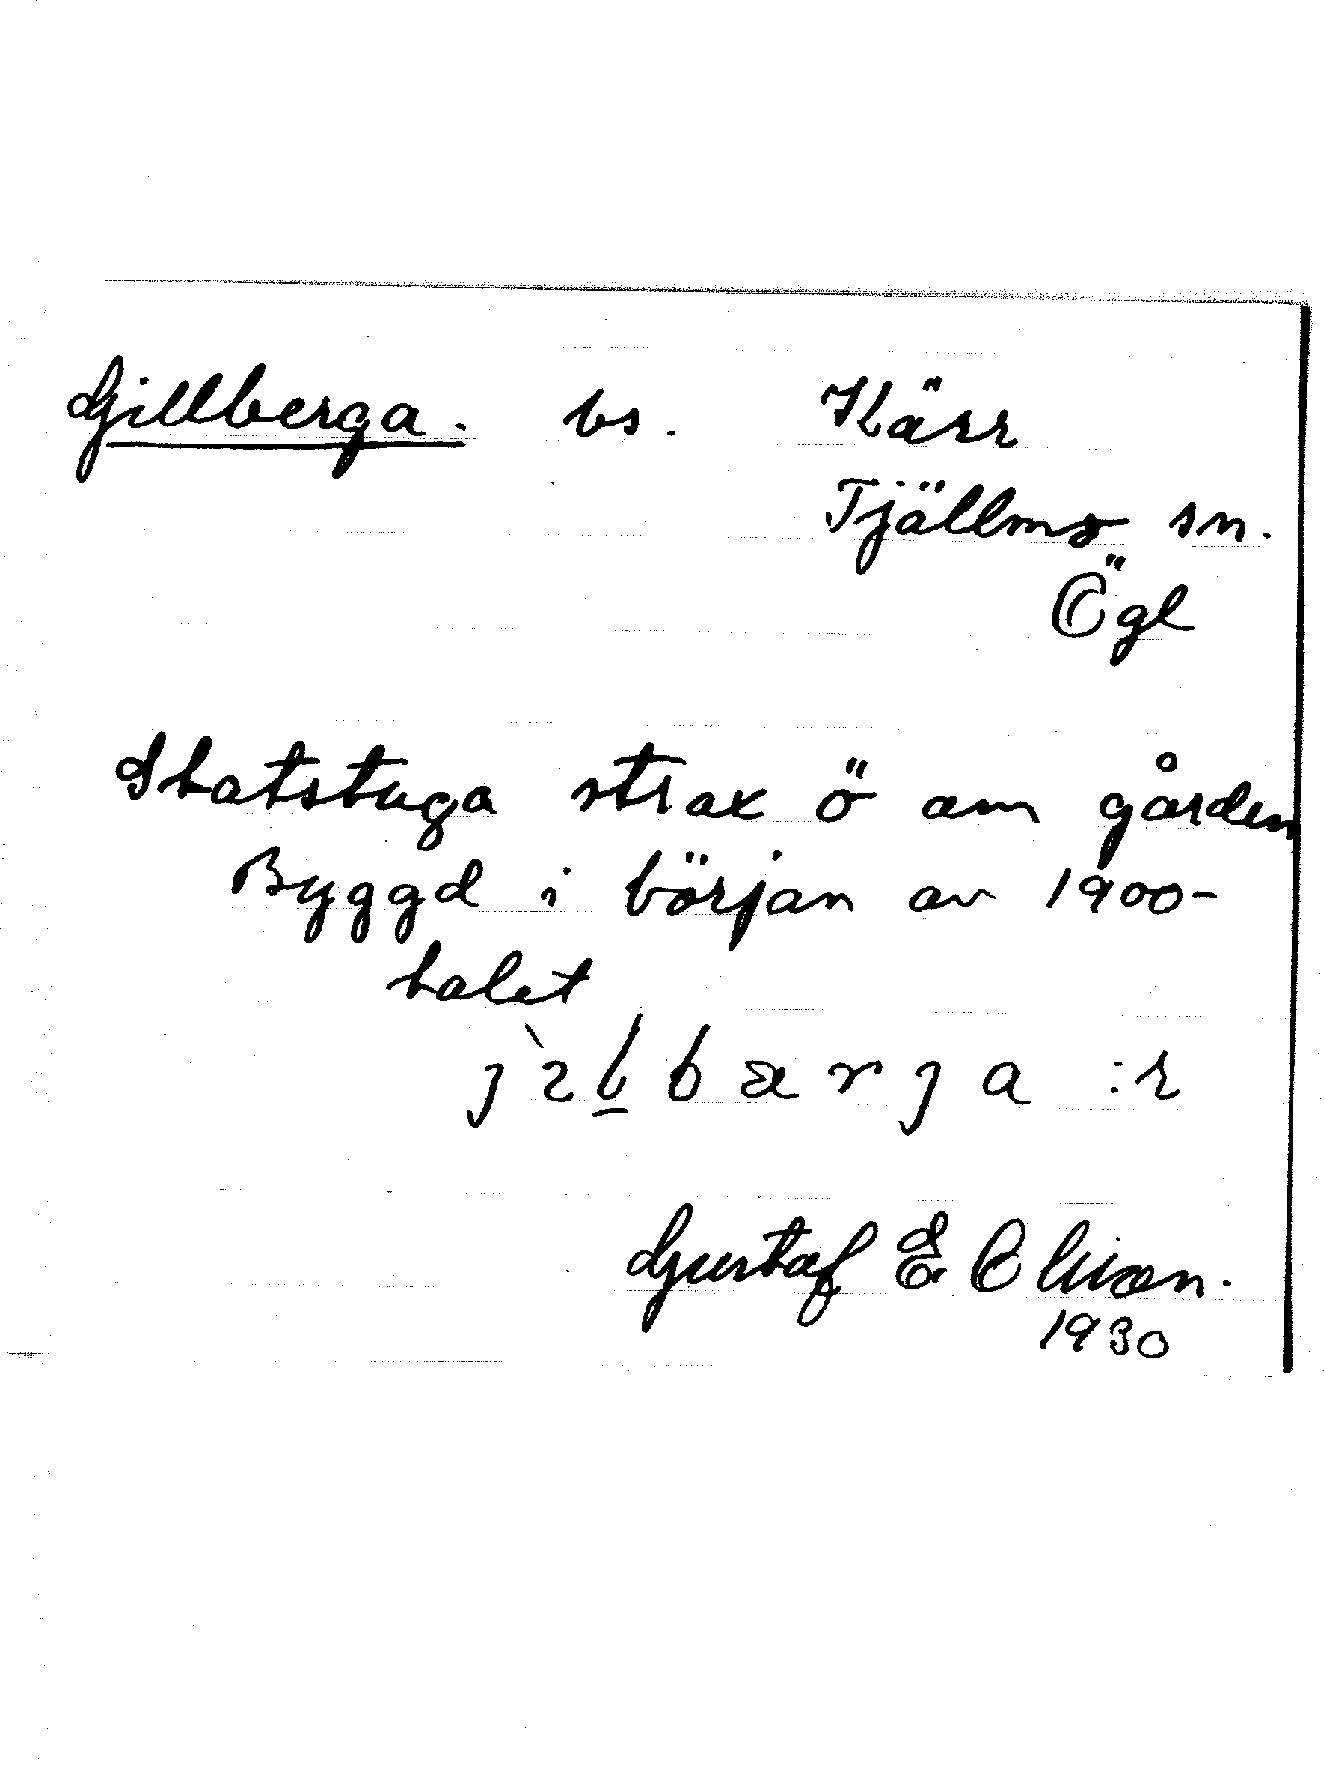 Gillberga. bs. Kärr
Tjällmo sn.
Ögl
Statstuga strax ö om gården
Byggd i början av 1900-
talet
Gustaf E
1930